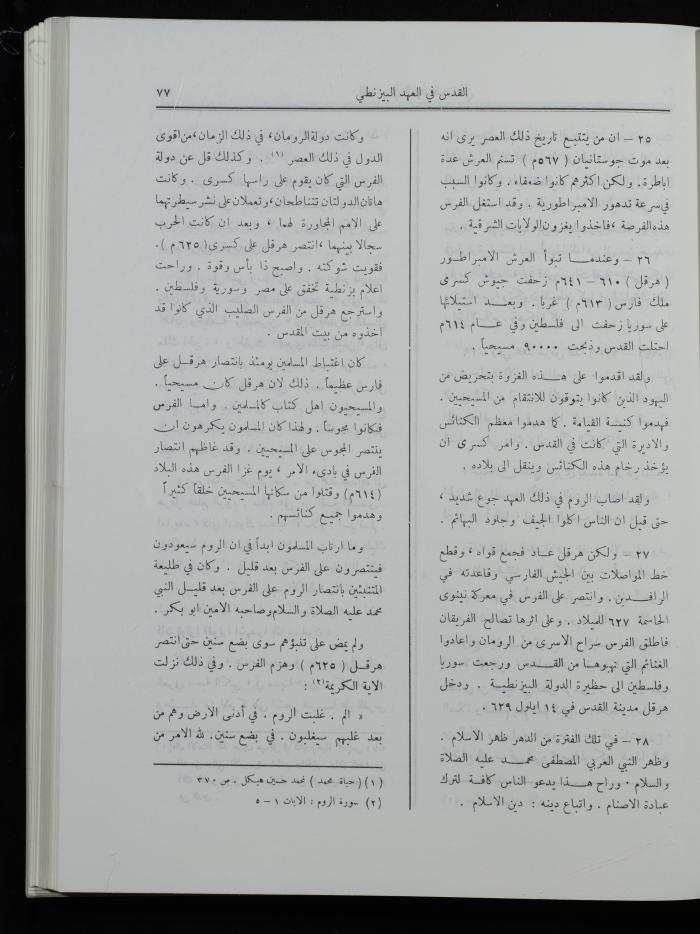 القدس في العهد البيزنطي
٧٧
٢٥ – ان من يتتبع تاريخ ذلك العصر يرى انه
بعد موت جوستانيان ( ٥٦٧م ) تسنم العرش عدة
اباطرة . ولكن اكثرهم كانوا ضعفاء . وكانوا السبب
في سرعة تدهور الامبراطورية . وقد استغل الفرس
هذه الفرصة ، فاخذوا يغزون الولايات الشرقية .
٢٦ – وعندما تبوأ العرش الامبراطور
( هرقل ) ٦١٠ – ٦٤١م زحفت جيوش كسرى
ملك فارس ( ٦١٣م ) غربا . وبعد استيلائها
على سوريا زحفت الى فلسطين وفي عام ٦١٤م
احتلت القدس وذبحت ٩٠٠٠٠ مسيحياً .
ولقد اقدموا على هذه الغزوة بتحريض من
اليهود الذين كانوا يتوقون للانتقام من المسيحيين .
فهدموا كنيسة القيامة . كما هدموا معظم الكنائس
والاديرة التي كانت في القدس . وامر كسرى ان
يؤخذ رخام هذه الكنائس وينقل الى بلاده .
ولقد اصاب الروم في ذلك العهد جوع شديد ،
حتى قيل ان الناس اكلوا الجيف وجلود البهائم .
٢٧ – ولكن هرقل عاد فجمع قواه ، وقطع
خط المواصلات بين الجيش الفارسي وقاعدته في
الرافدين . وانتصر على الفرس في معركة نينوى
الحاسمة ٦٢٧ للميلاد . وعلى اثرها تصالح الفريقان
فاطلق الفرس سراح الاسرى من الرومان واعادوا
الغنائم التي نهبوها من القدس ورجعت سوريا
وفلسطين الى حظيرة الدولة البيزنطية . ودخل
هرقل مدينة القدس في ١٤ ايلول ٦٢٩ .
٢٨ – في تلك الفترة من الدهر ظهر الاسلام .
وظهر النبي العربي المصطفى محمد عليه الصلاة
والسلام . وراح هذا يدعو الناس كافة لترك
عبادة الاصنام . واتباع دينه : دين الاسلام .
وكانت دولة الرومان، في ذلك الزمان، من اقوى
الدول في ذلك العصر (١) . وكذلك قل عن دولة
الفرس التي كان يقوم على راسها كسرى . وكانت
هاتان الدولتان تتناطحان، وتعملان على نشر سيطرتهما
على الامم المجاورة لهما ، وبعد ان كانت الحرب
سجالا بينهما ، انتصر هرقل على كسرى ( ٦٢٥ م ) .
فقويت شوكته . واصبح ذا بأس وقوة . وراحت
اعلام بزنطية تخفق على مصر وسورية وفلسطين .
واسترجع هرقل من الفرس الصليب الذي كانوا قد
اخذوه من بيت المقدس .
كان اغتباط المسلمين يومئذ بانتصار هرقل على
فارس عظيماً . ذلك لان هرقل كان مسيحياً .
والمسيحيون اهل كتاب كالمسلمين . واما الفرس
فكانوا مجوساً . ولهذا كان المسلمون يكرهون ان
ينتصر المجوس على المسيحيين . وقد غاظهم انتصار
الفرس في بادىء الامر ، يوم غزا الفرس هذه البلاد
(٦١٤م) وقتلوا من سكانها المسيحيين خلقاً كثيراً
وهدموا جميع كنائسهم .
وما ارتاب المسلمون ابداً في ان الروم سيعودون
فينتصرون على الفرس بعد قليل . وكان في طليعة
المتنبئين بانتصار الروم على الفرس بعد قليل النبي
محمد عليه الصلاة والسلام وصاحبه الامين ابو بكر .
ولم يمض على تنبؤهم سوى بضع سنين حتى انتصر
هرقل ( ٦٢٥م ) وهزم الفرس . وفي ذلك نزلت
الاية الكريمة (٢) :
« الم . غلبت الروم . في أدنى الارض وهم من
بعد غلبهم سيغلبون . في بضع سنين. لله الامر من
(١) (حياة محمد ) لمحمد حسين هيكل . ص ٣٧٠
(٢) سورة الروم : الايات ١ – ٥